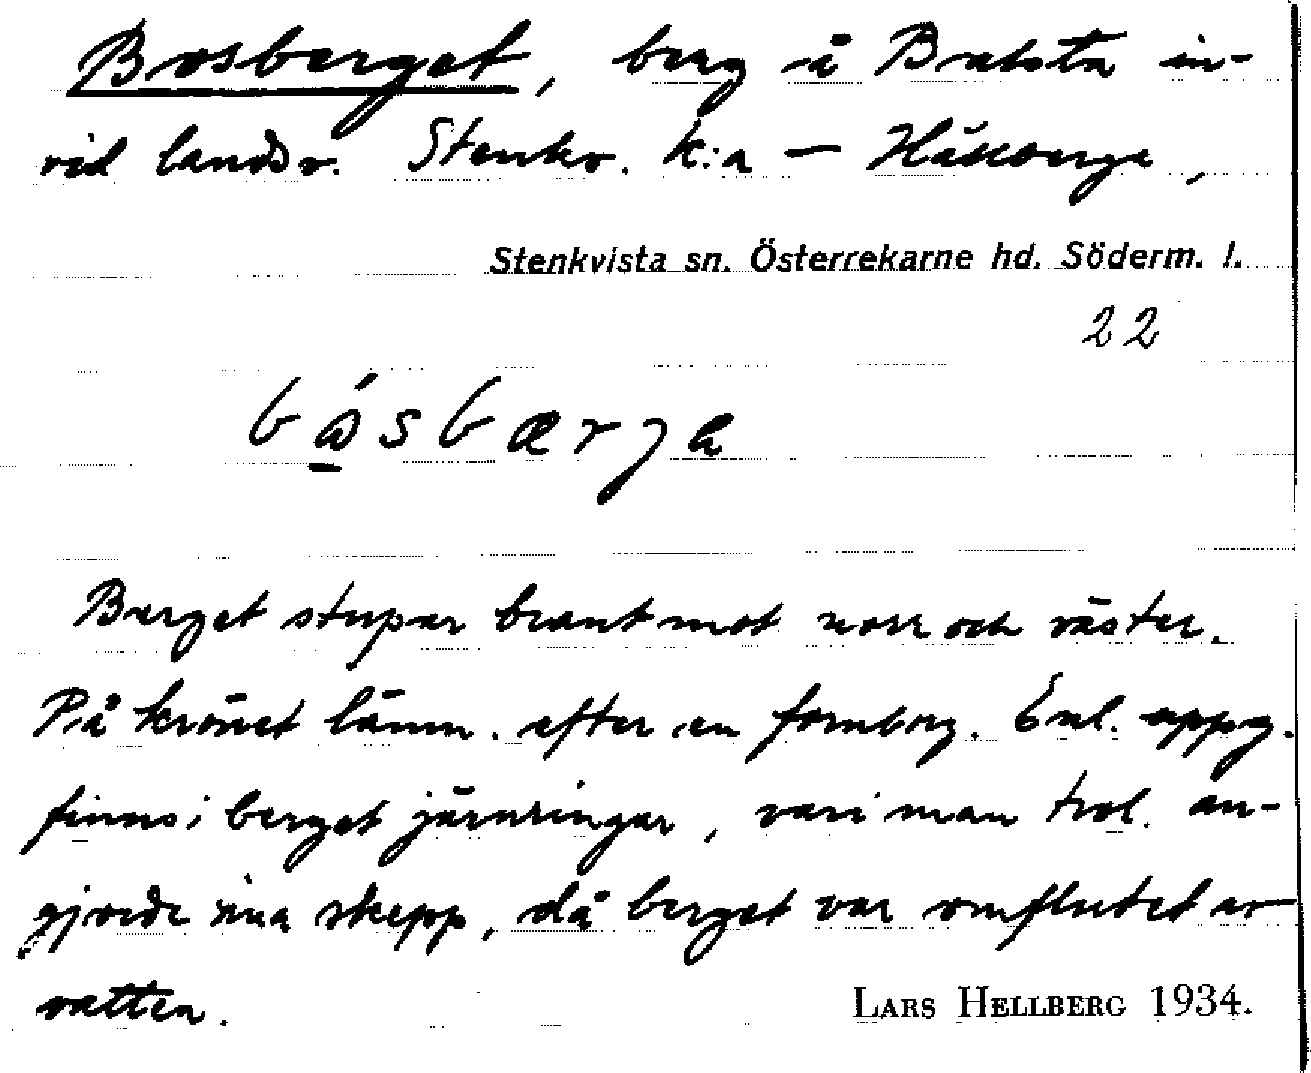 Bosberget, berg å Balsta in-
vid landsv. Stenkv. k:a — Håkberga,
Stenkvista sn. Österrekarne hd. Söderm. l.
22
Berget stupar brant mot norr och väster.
På krönet lämn. efter en fornborg. Enl. uppg.
finns i berget järnringar, vari man trol. an-
gjorde sina skepp, då berget var omflutet av
vatten.
LARS HELLBERG 1934.